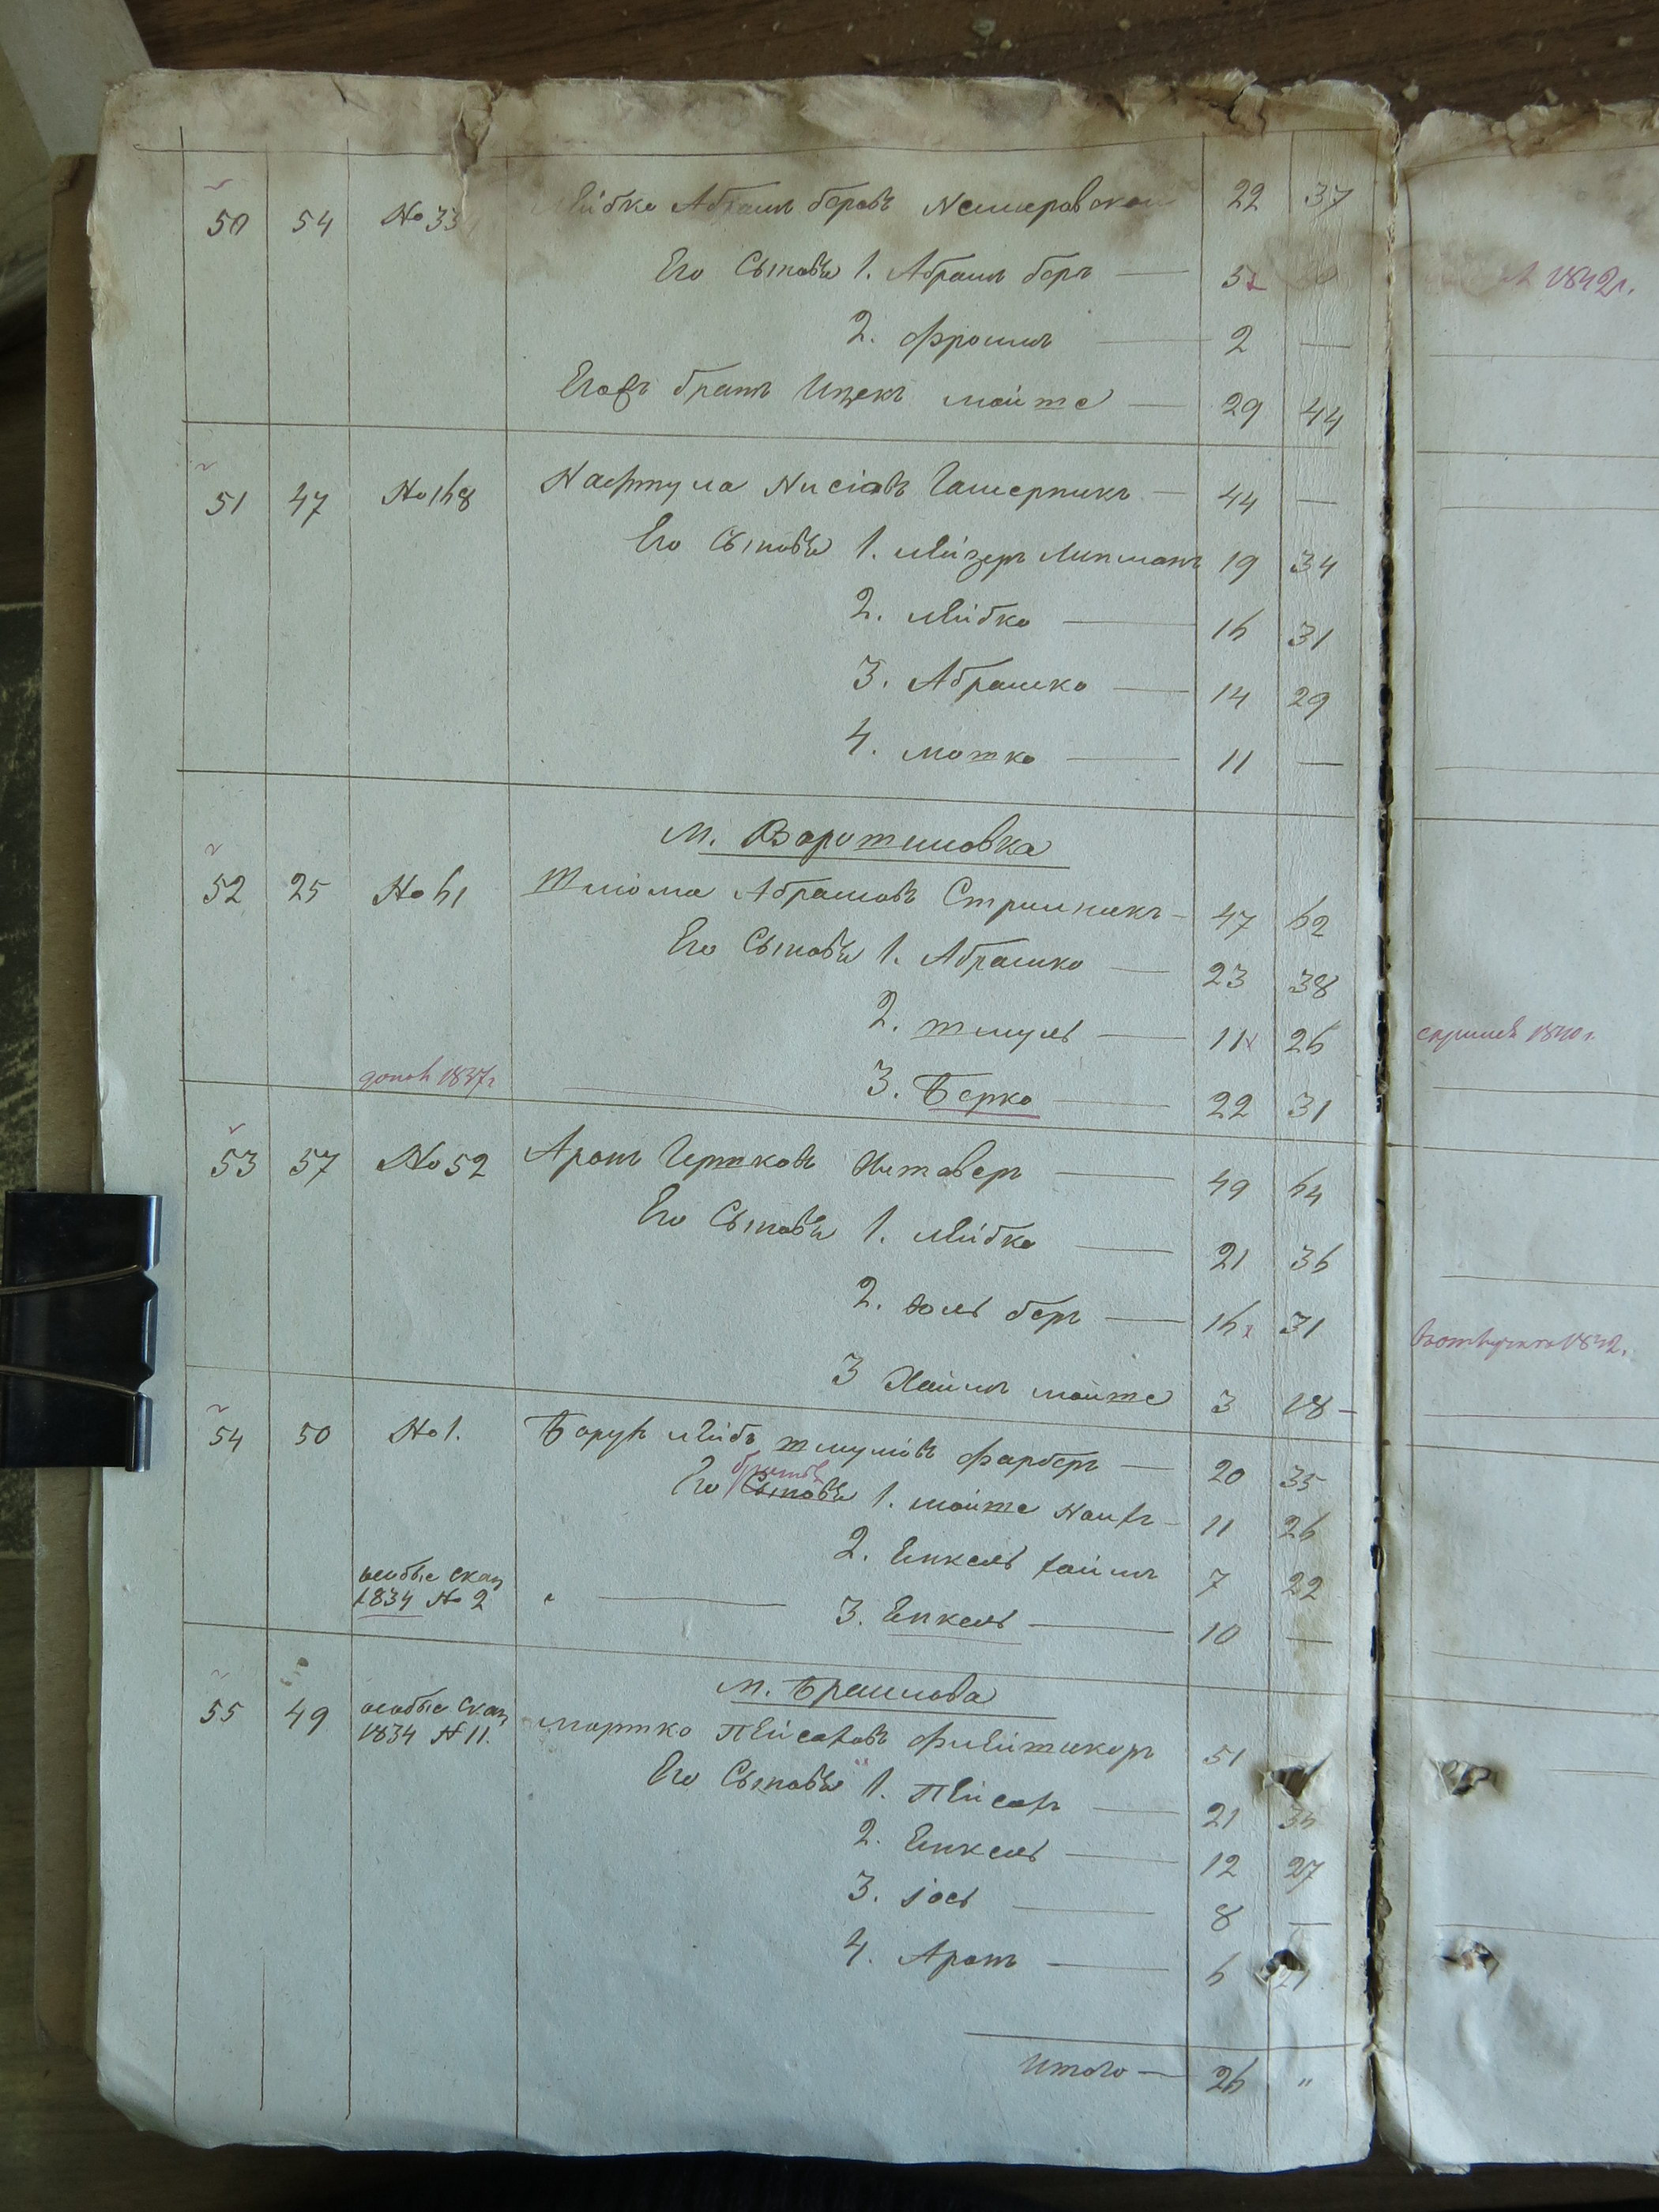 50 54 № 33 Лейбко Абрам беровъ Немировской 22 37
Его Сыновья 1. Абрам беръ — 5
2. Фроимъ — 2 —
Еговъ братъ Ицекъ мойше — 29 44
л 1842г.
51 47 № 168 Нафтула Нисіовъ Гамерникъ — 44 —
Его Сыновья 1. Лейзеръ Липманъ 19 34
2. Лейбко — 16 31
3. Абрашко — 14 29
4. мотко — 11 —
м. Воротиловка
52 25 № 61 Шліома Абрамовъ Стрилникъ — 47 62
Его Сыновья 1. Абрашко — 23 38
2. Шмуль — 11 26
допол 1837г 3. Берко — 22 31
53 57 № 52 Аронъ Гершковъ — 49 64
Его Сыновья 1. Лейбко — 21 36
2. Іоль беръ — 16 31
3 Хаимъ мойше 3 18 —
1840г.
1842.
54 50 № 1. Борухъ Лейбъ Шмулевъ Фарберъ — 20 35
Его братья Сыновья 1. мойше — 11 26
2. Енкель хаимъ 7 22
особые сказ 1834 № 2 — 3. Енкель — 10 —
м. Браилова
55 49 особые сказ 1834 № 11. мортко Пейсаховъ 51
Его Сыновья 1. Пейсахъ — 21 36
2. Енкель — 12 27
3. Іось — 8 —
4. Аронъ — 6 21
Итого — 26 "